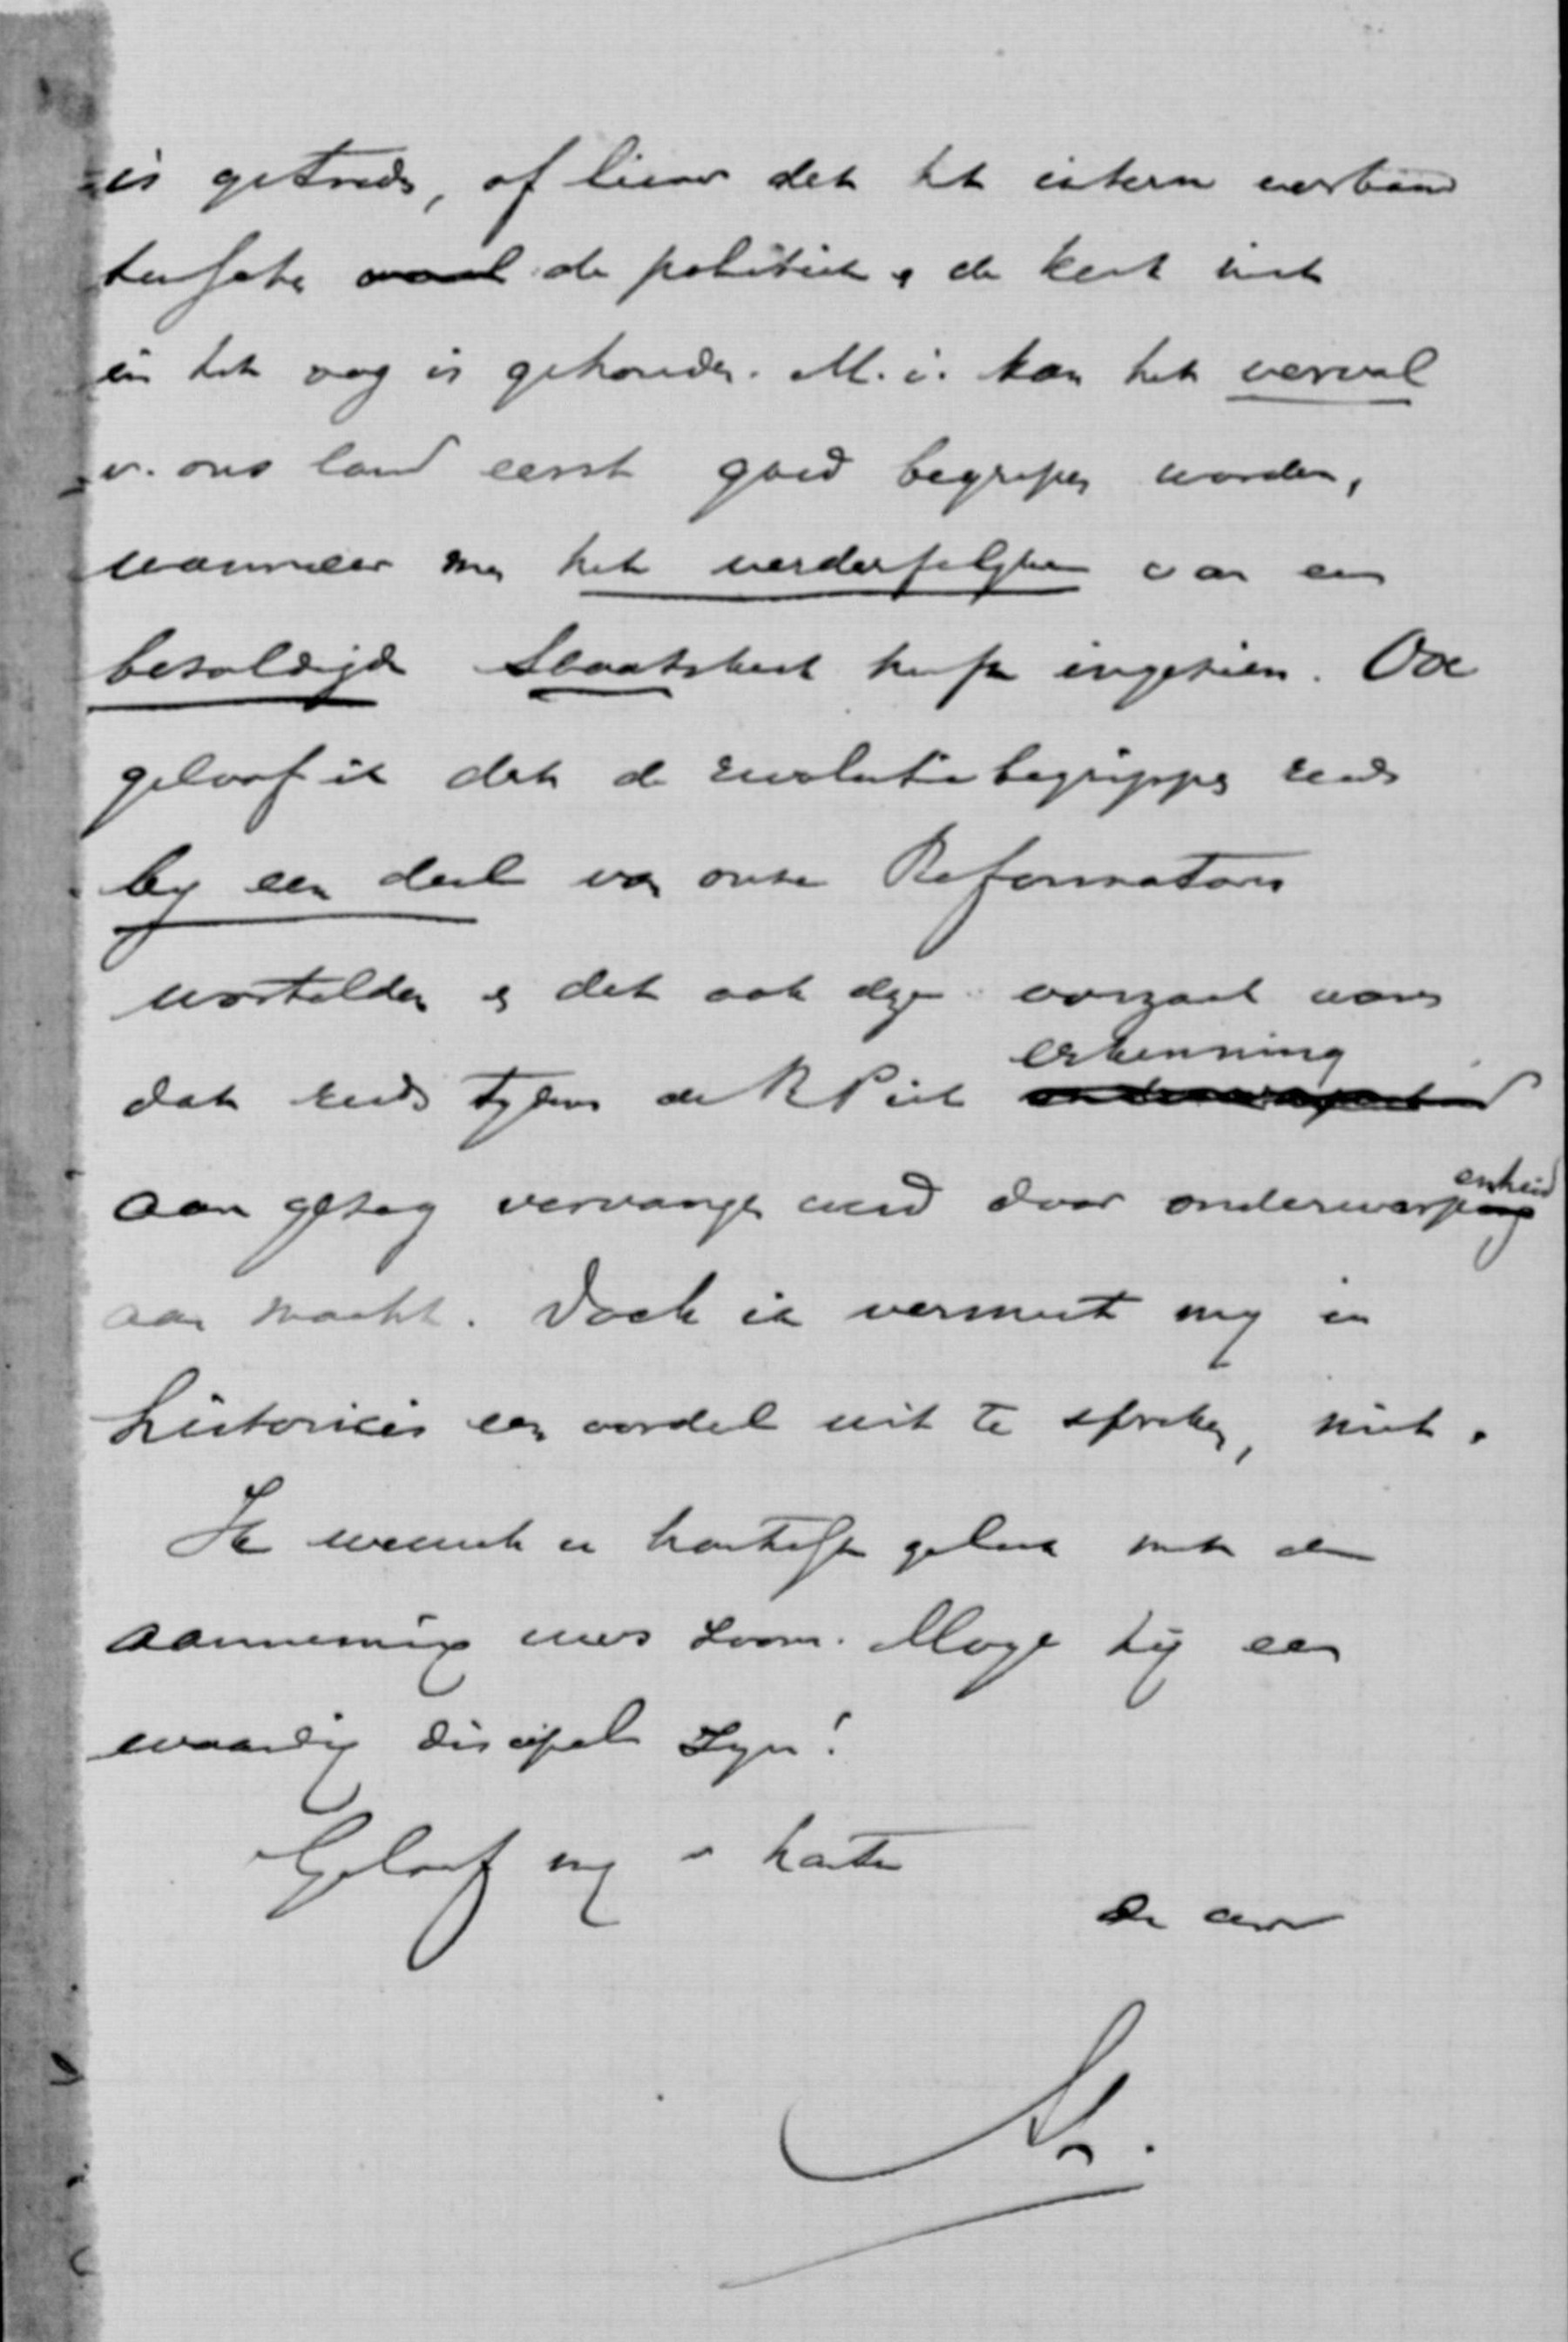 is getreden, of liever dat het intern verband
tusschen de politiek en de kerk niet
in het oog is gehouden. M. i. kan het verval
v. ons land eerst goed begrepen worden,
wanneer men het verderfelijke van een
bezoldigde Staatskerk heeft ingezien. Ook
geloof ik dat de revolutiebegrippen reeds
by een deel van onze Reformatoren
wortelden en dat ook dye oorzaak waren
dat reeds tydens de Rpiek erkenning
aan gezag vervangen werd door onderworpenheid
aan macht. Doch ik vermeet my in
historicis een oordeel uit te spreken, niet.
Ik wensch u hartelyk geluk met de
aanneming uws zoons. Moge hij een
waardig discipel zyn!
Geloof my v harte
de uwe